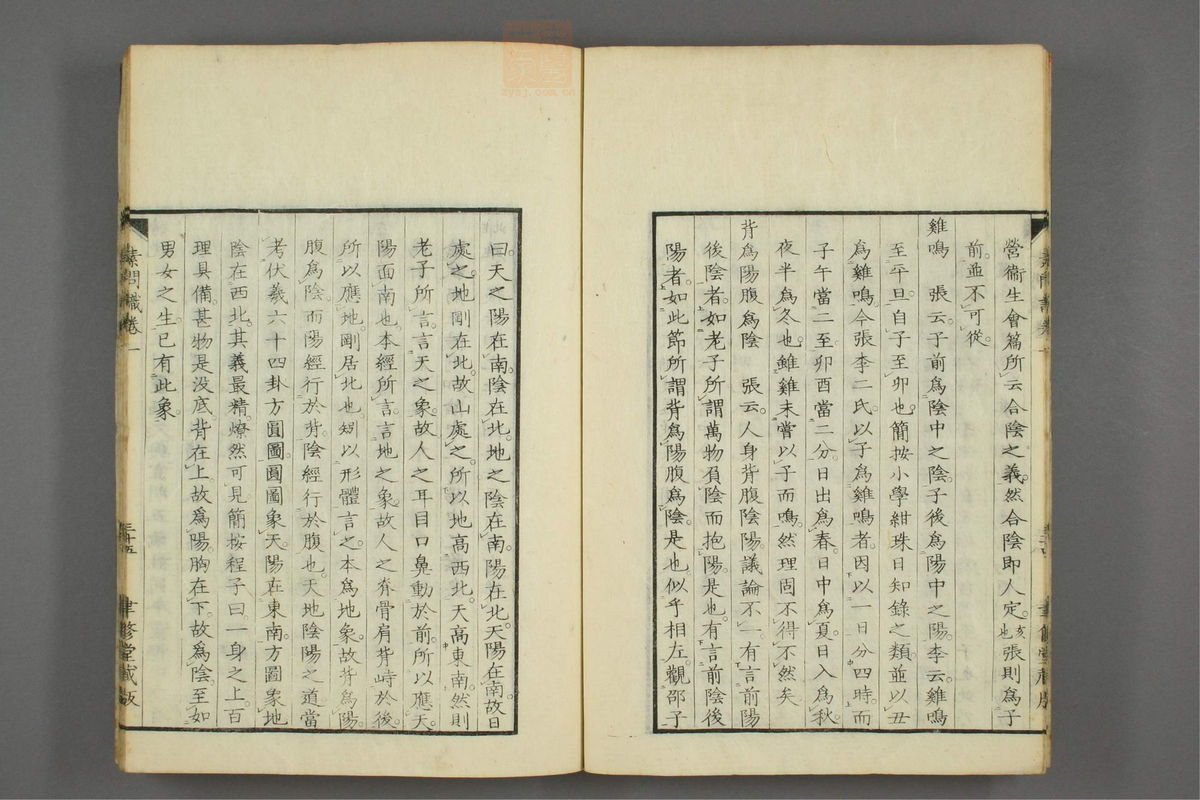 營衞生會篇所云合陰之義然合陰即人定亥也張則爲子
前並不可從
雞鳴　張云子前爲陰中之陰子後爲陽中之陽李云雞鳴
至平旦自子至卯也簡按小學紺珠日知錄之類並以丑
爲雞鳴今張李二氏以子爲雞鳴者因以一日分四時而
子午當二至卯酉當二分日出爲春日中爲夏日入爲秋
夜半爲冬也雖雞未嘗以子而鳴然理固不得不然矣
背爲陽腹爲陰　張云人身背腹陰陽議論不一有言前陽
後陰者如老子所謂萬物負陰而抱陽是也有言前陰後
陽者如此節所謂背爲陽腹爲陰是也似乎相左觀邵子
曰天之陽在南陰在北地之陰在南陽在北天陽在南故日
處之地剛在北故山處之所以地高西北天高東南然則
老子所言言天之象故人之耳目口鼻動於前所以應天
陽面南也本經所言言地之象故人之脊骨肩背峙於後
所以應地剛居北也矧以形體言之本爲地象故背爲陽
腹爲陰而陽經行於背陰經行於腹也天地陰陽之道當
考伏羲六十四卦方圓圖圓圖象天陽在東南方圖象地
陰在西北其義最精燎然可見簡按程子曰一身之上百
理具備甚物是没底背在上故爲陽胸在下故爲陰至如
男女之生已有此象
素問識卷一
三十五
聿修堂藏版